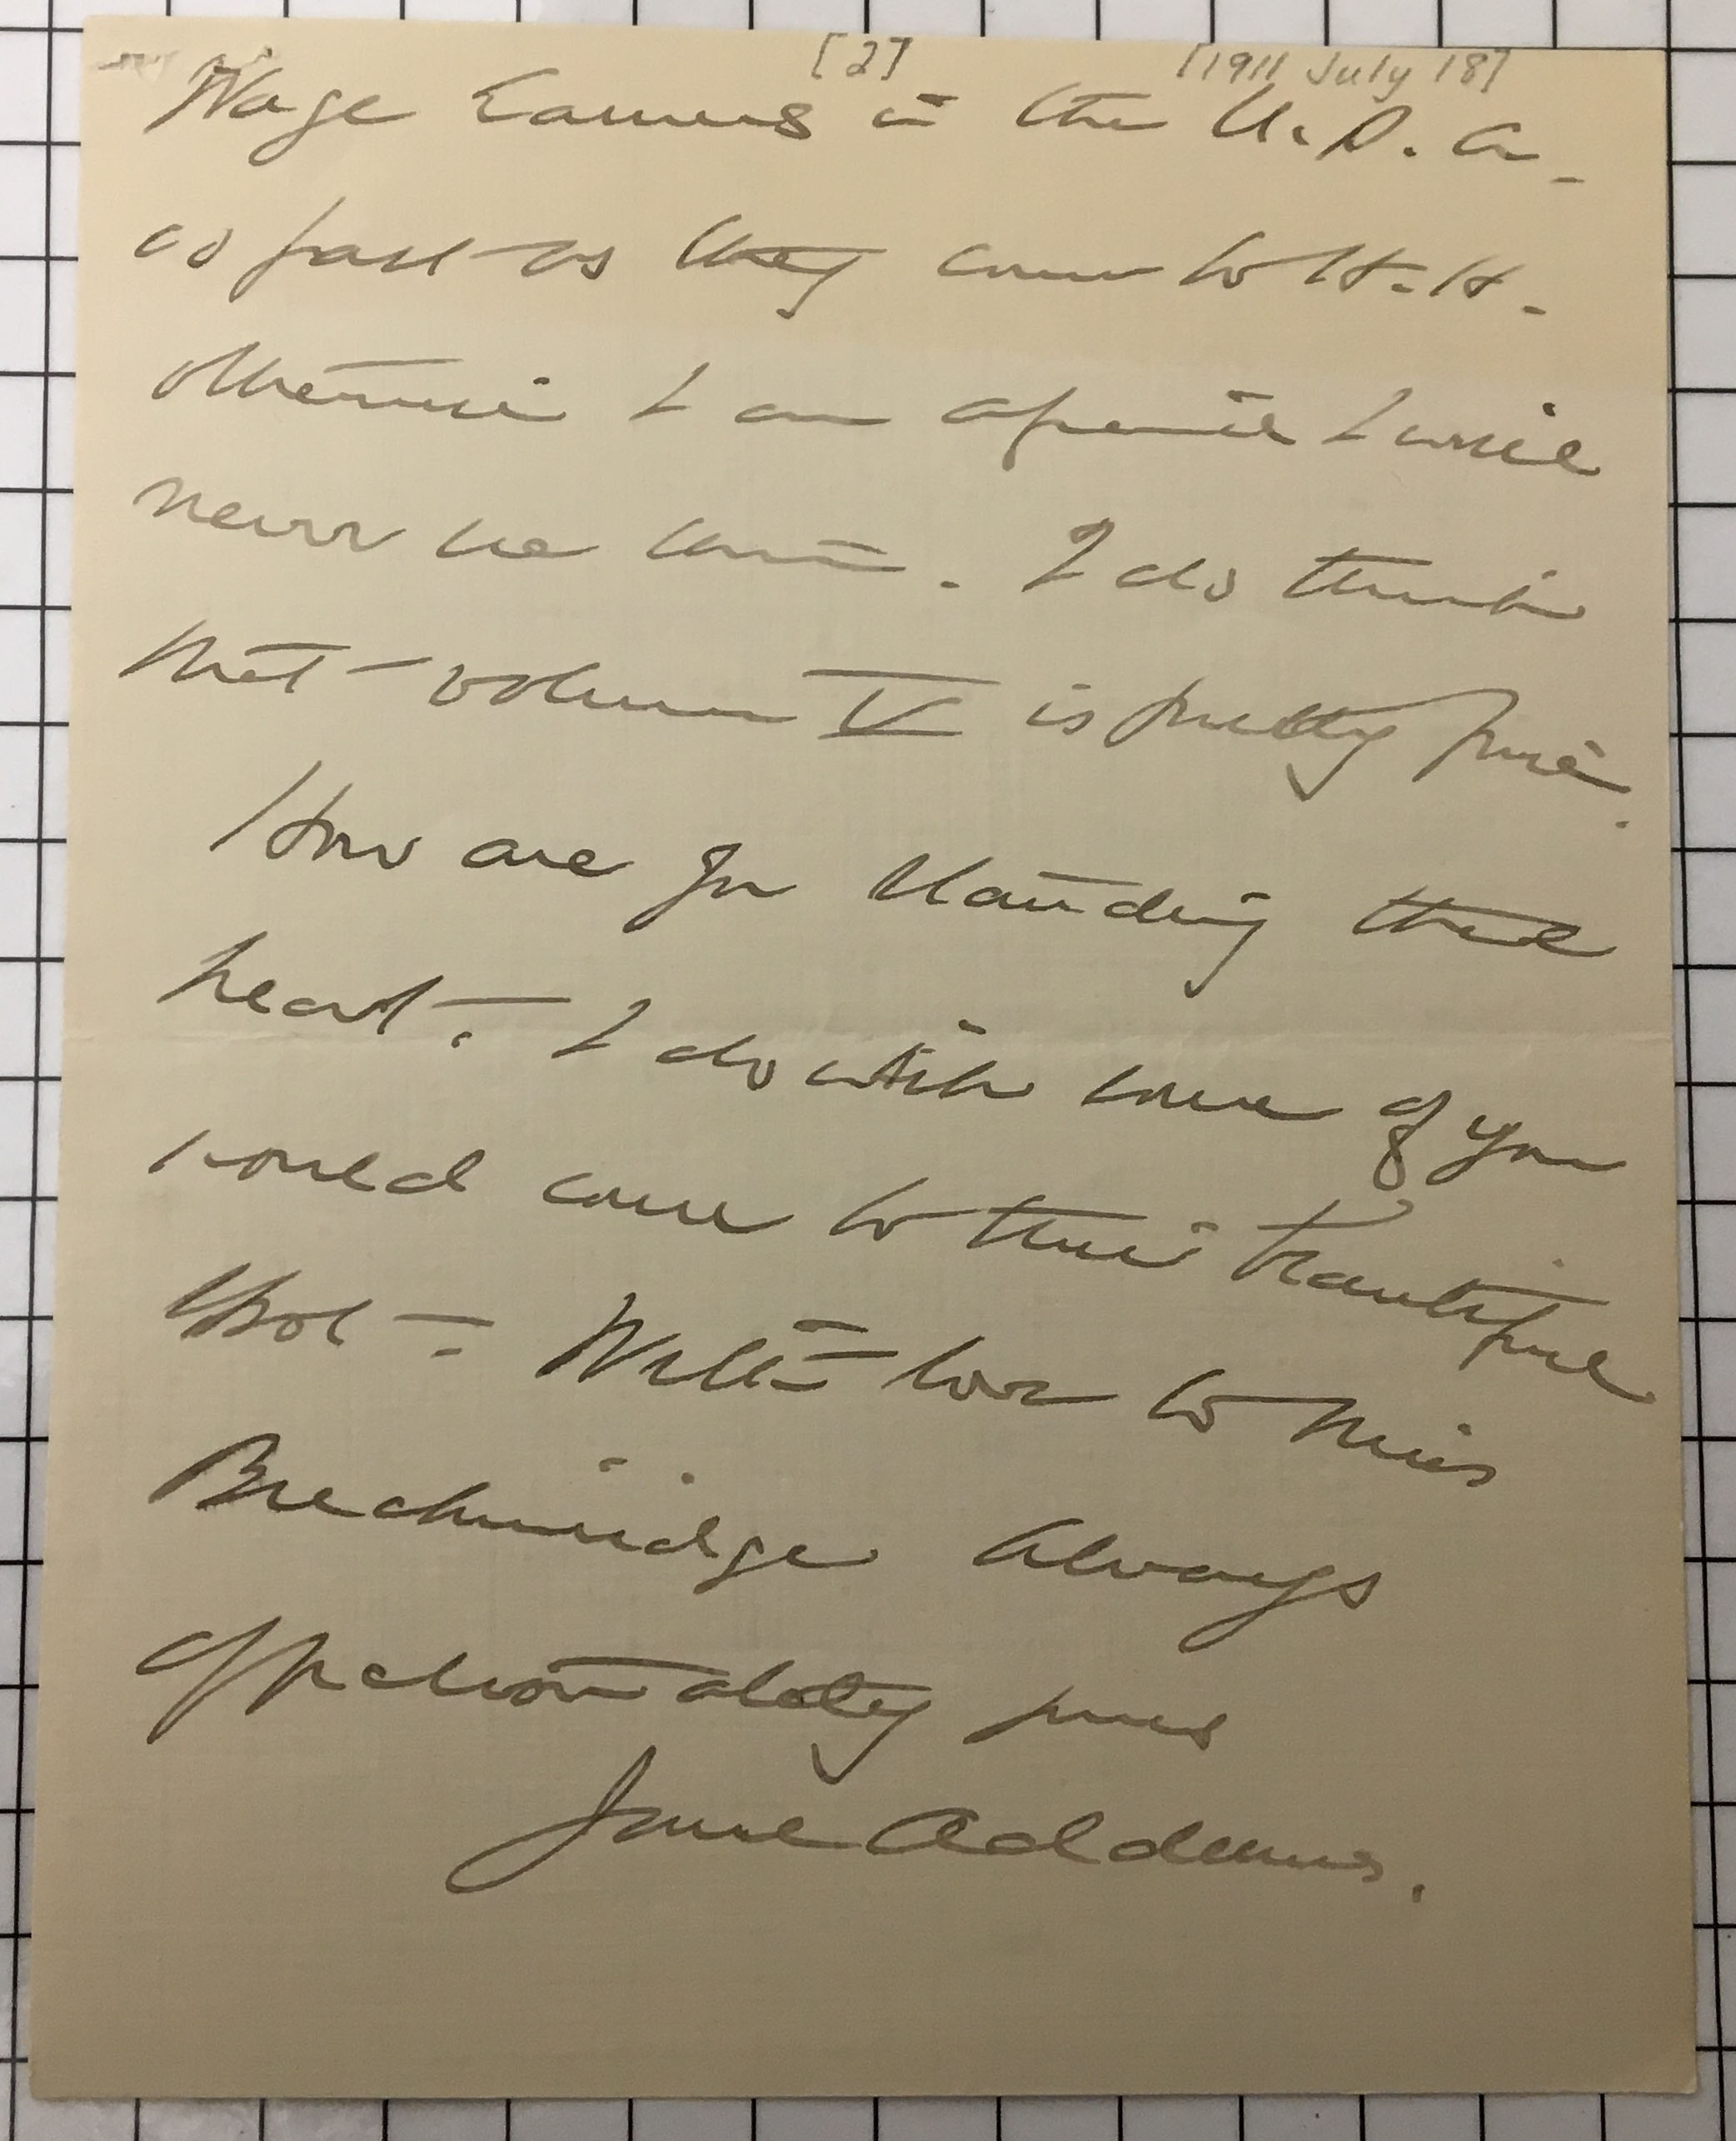 [2] [1911 July 18]
Wage Earners in the U.S.A.
as fast as they come to H.H.
otherwise I am afraid I will
never be done. I do think
that volume V is pretty fine.
How are you standing the
heat. I do wish some of you
would come to this beautiful
spot - With love to Miss
Breckinridge Always
affectionately yours
Jane Addams.